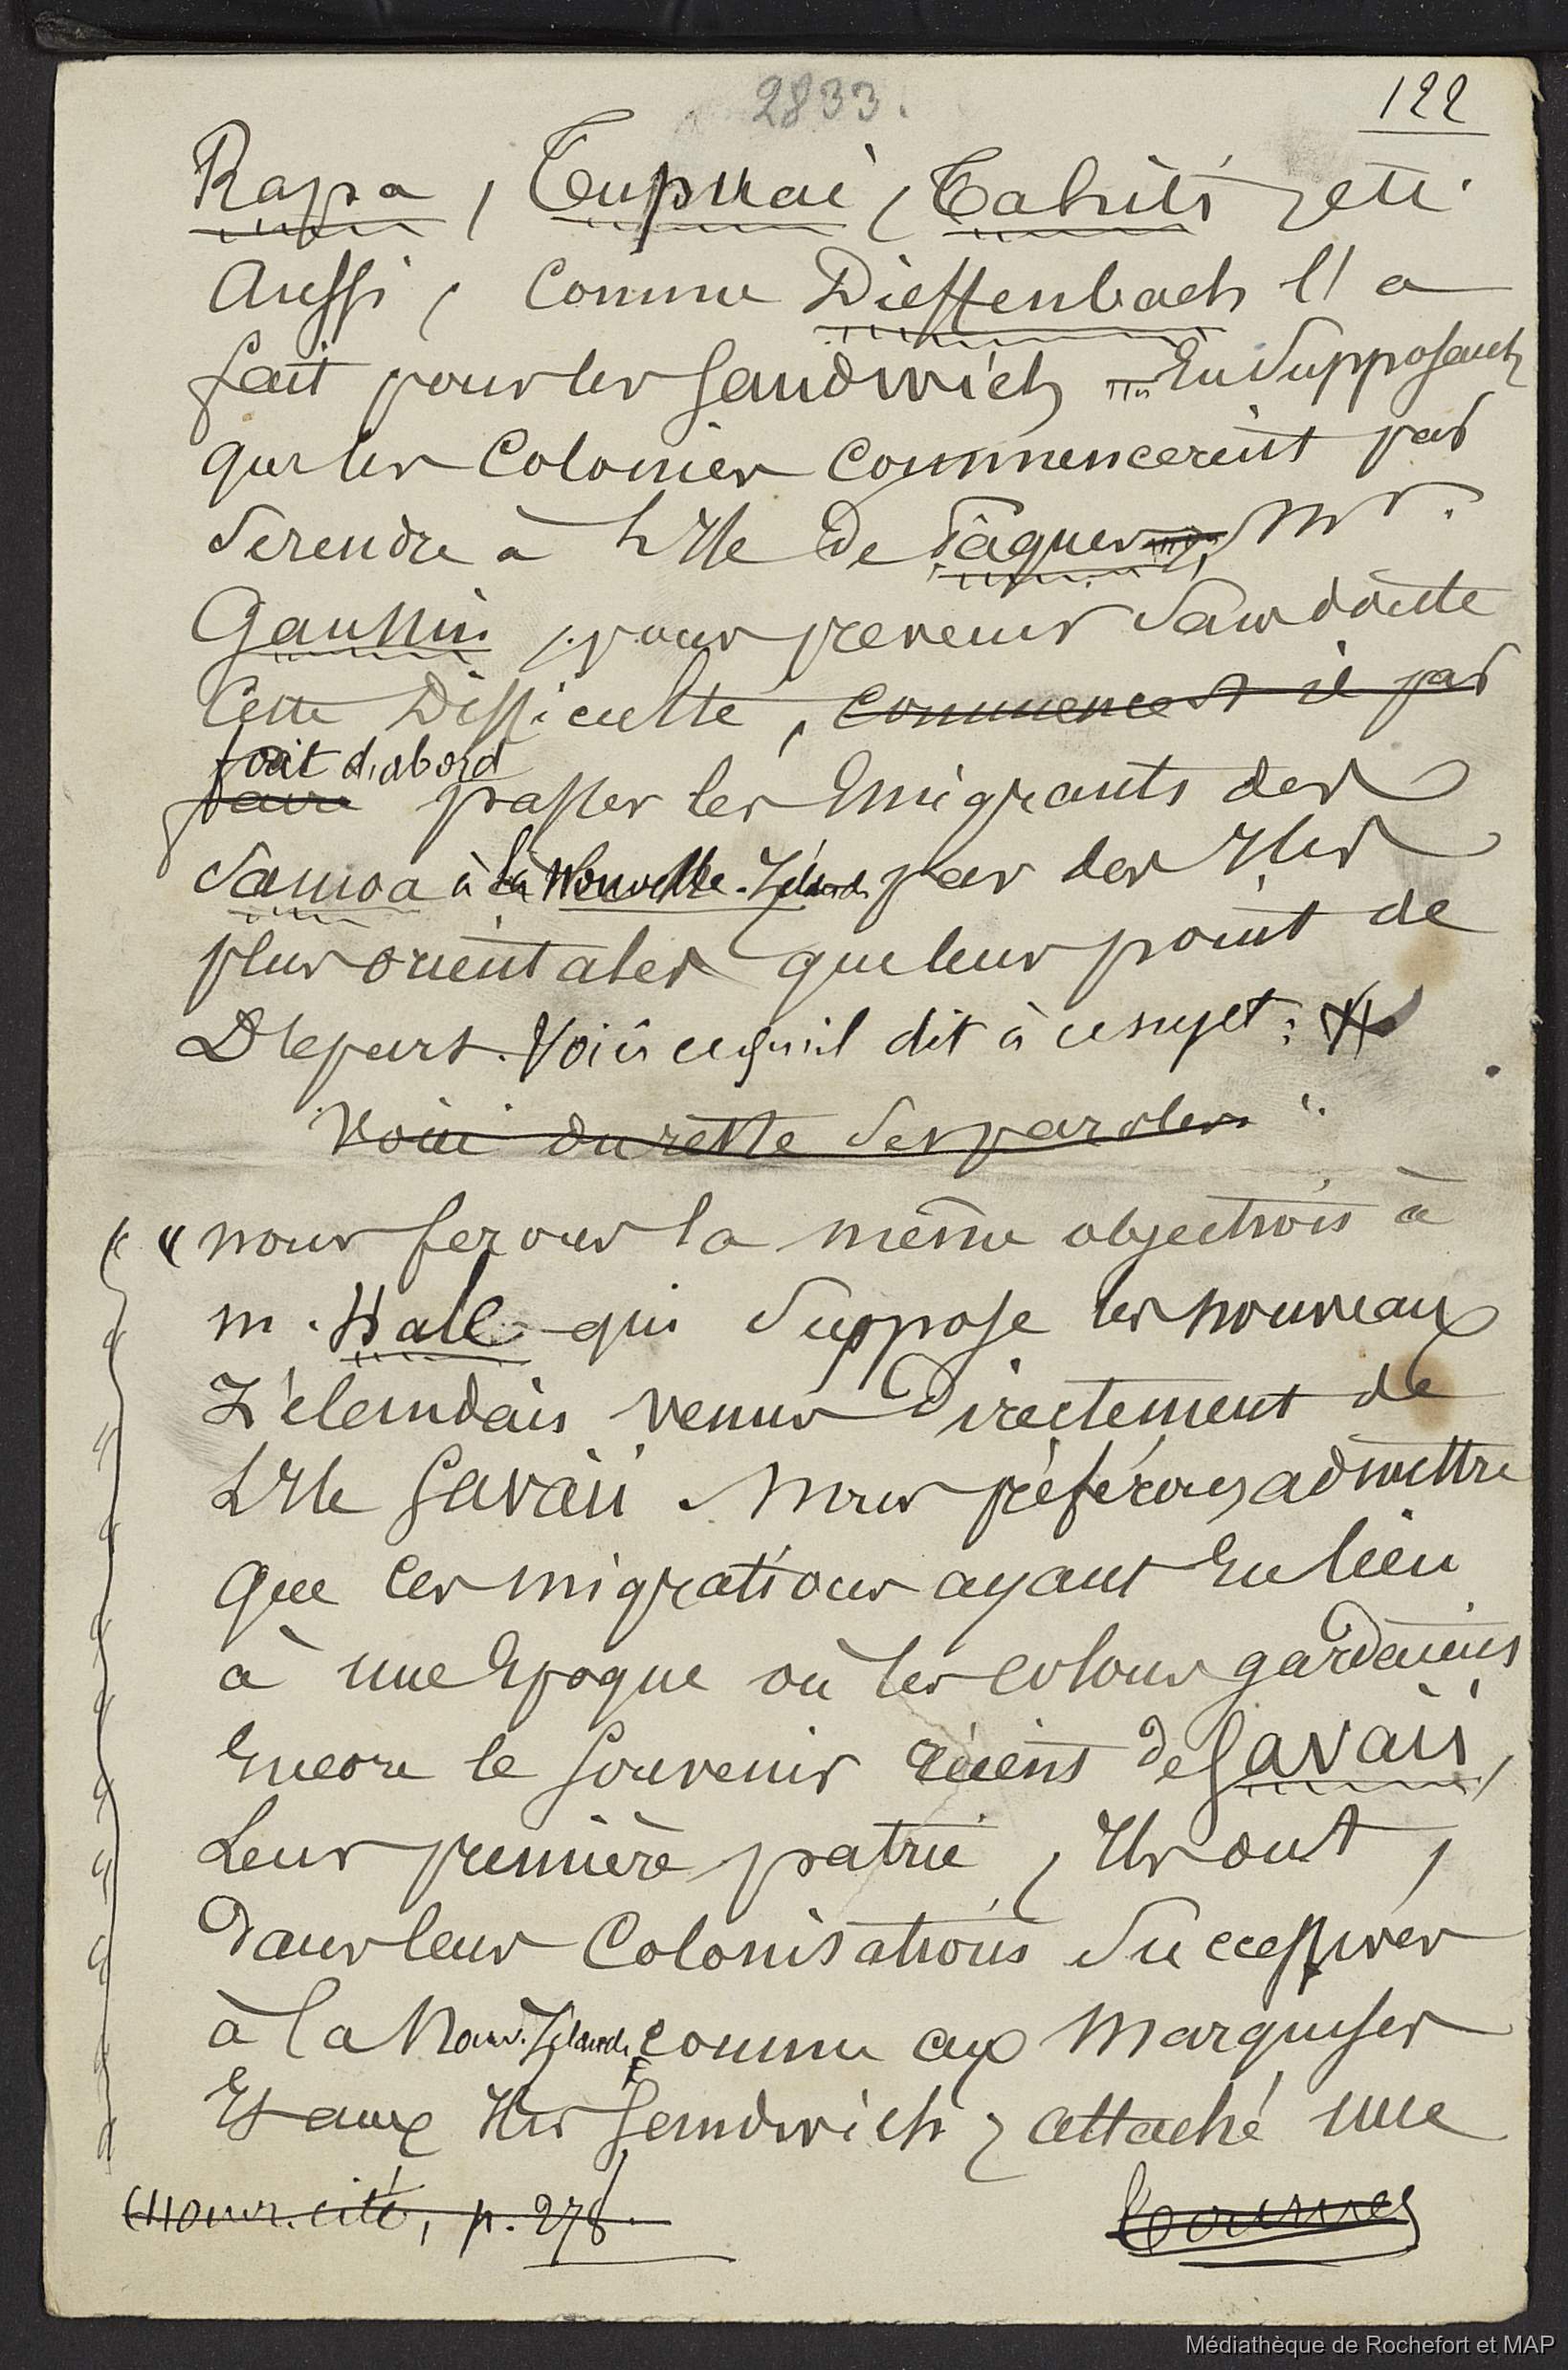 2833.
122
Rapa, Tupuai, Tahiti, etc.
Aussi, comme Dieffenbach l'a
fait pour les Sandwich en supposant
que les colonies commencerent par
se rendre à l'Ile de Pâques, Mr.
Gaussin, pour prévenir sans doute
cette difficulté, commence t il par
fait d'abord
faire passer les Emigrants des
Samoa à la Nouvelle-Zélande par des Iles
plus orientales que leur point de
Départ. Voici ce qu'il dit à ce sujet:
Voici du reste ses paroles:
"nous ferons la même objection à
m. Hale qui suppose les nouveaux
Zélandais venus directement de
L'Ile Savaii. Nous préférons admettre
que ces migrations ayant eu lieu
à une Epoque où les colons gardaient
Encore le souvenir récent de Savaii,
Leur première patrie, Ils ont,
dans leurs colonisations successives
à la Nouv. Zélande, comme aux Marquises
Et aux Iles Sandwich, attaché une
(1) ouvr. cité, p. 278.
Tournez
Médiathèque de Rochefort et MAP